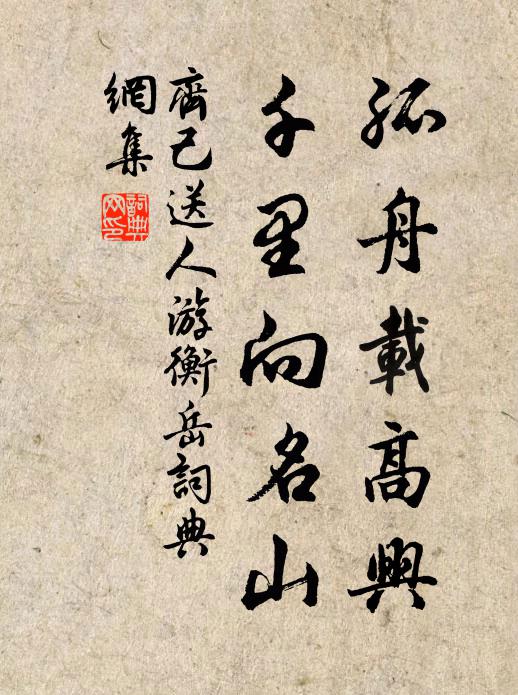 孤舟載高興
千里向名山
齊己送人游衡岳詞典
網集
詞典
网印